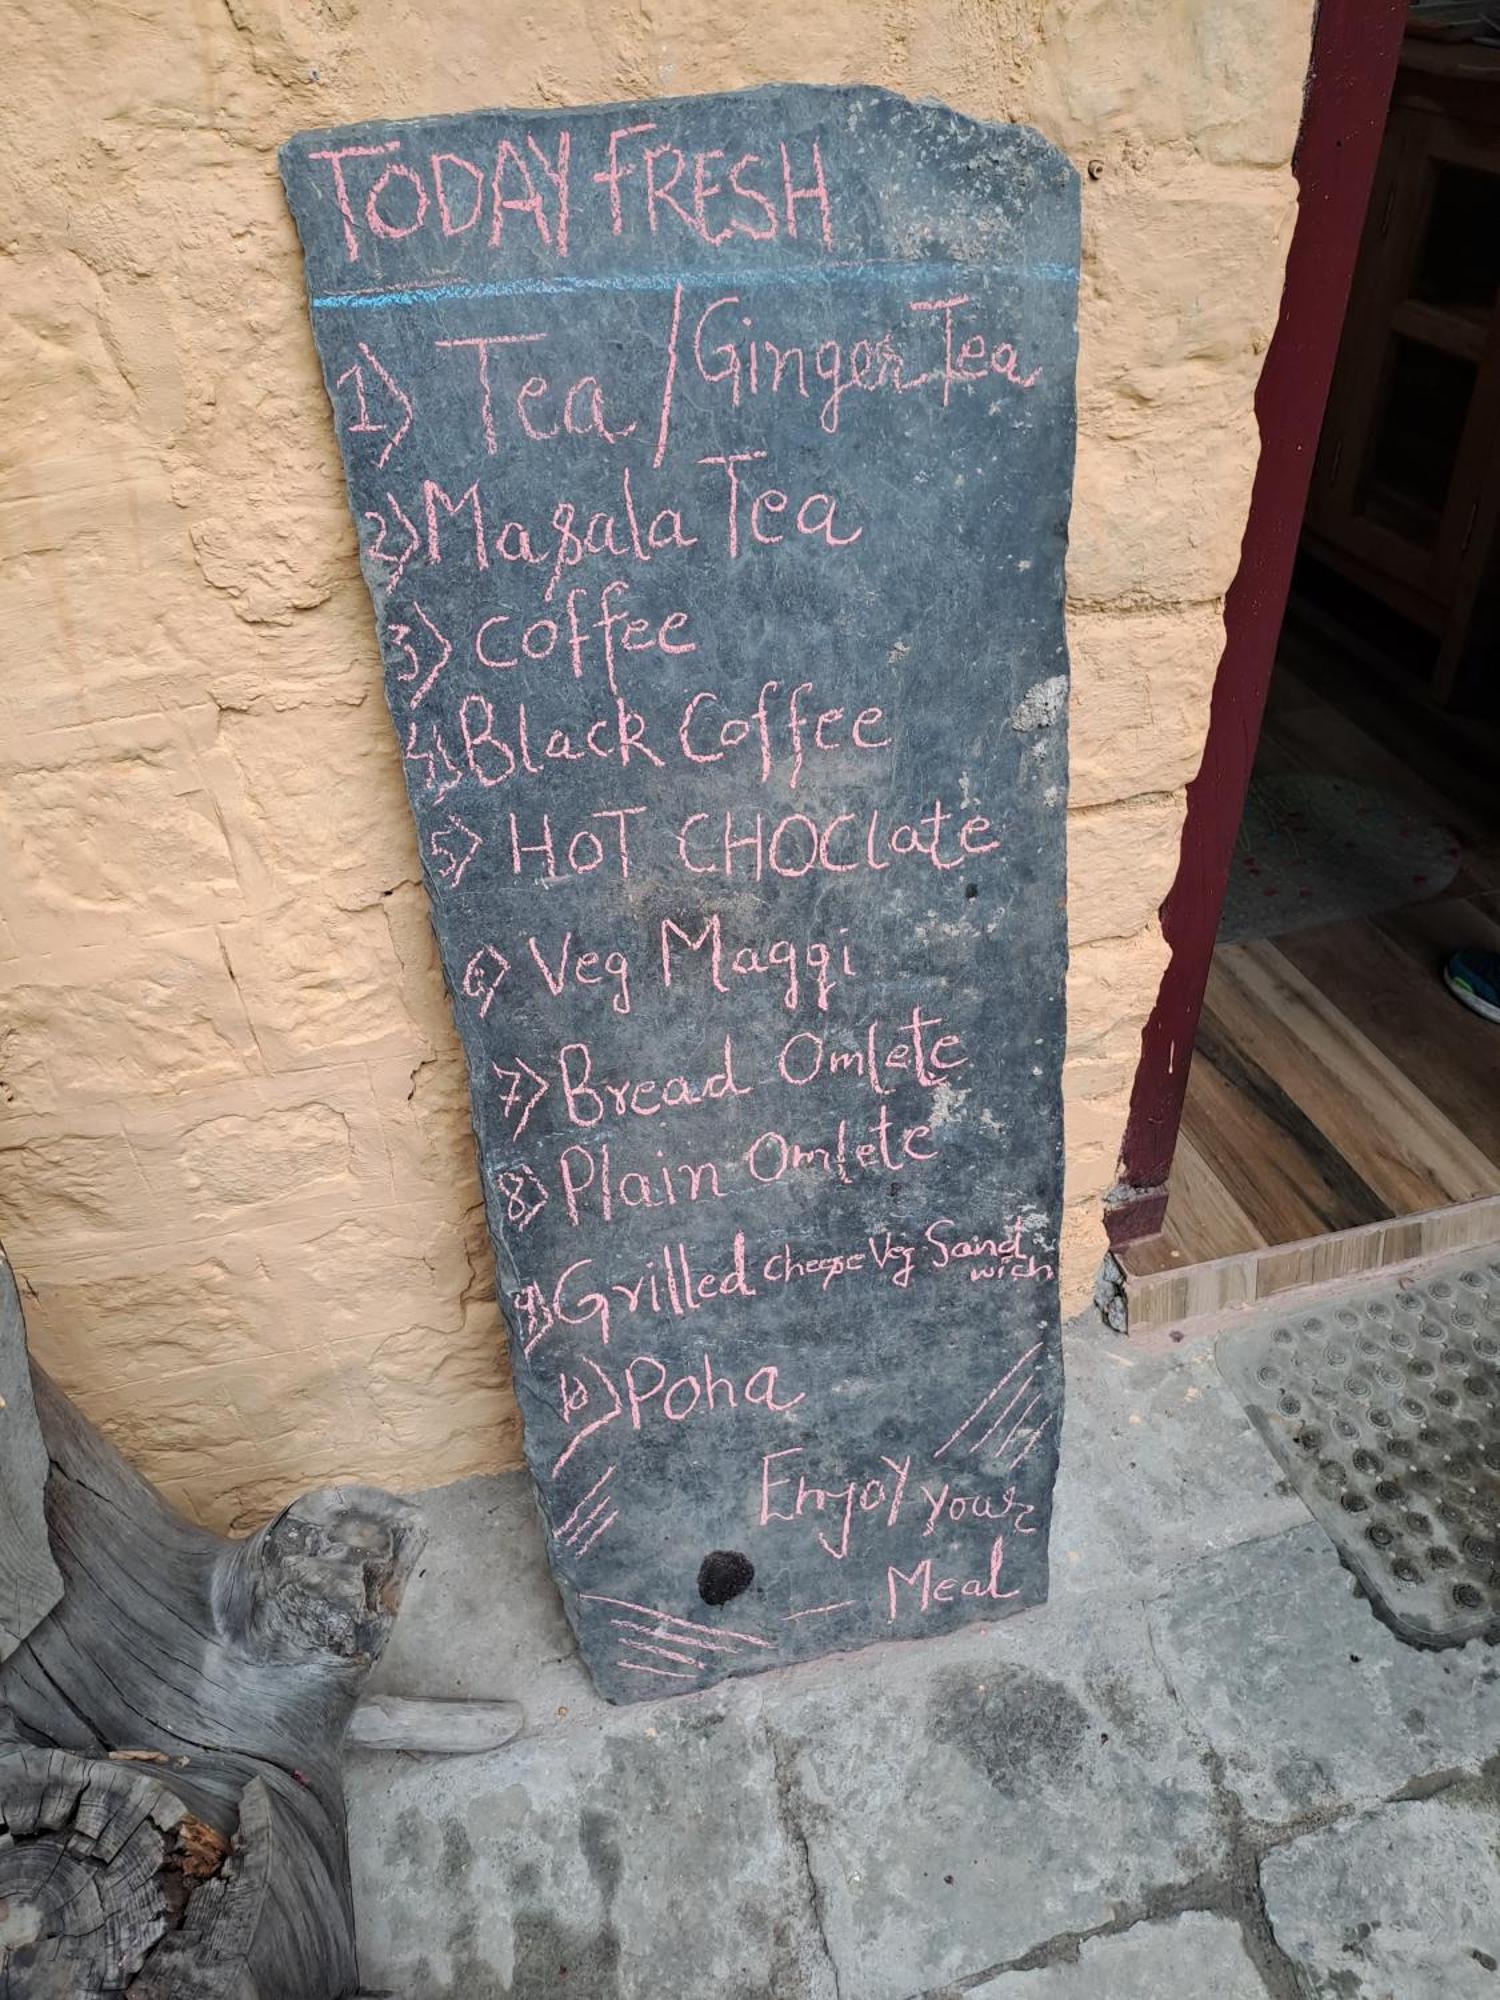 TODAY FRESH
1) Tea / Ginger Tea
2) Masala Tea
3) coffee
4) Black Coffee
5) HOT CHOClate
6) Veg Maggi
7) Bread Omlete
8) Plain Omlete
9) Grilled cheese Veg Sand
wich
10) Poha
Enjoy your
— Meal